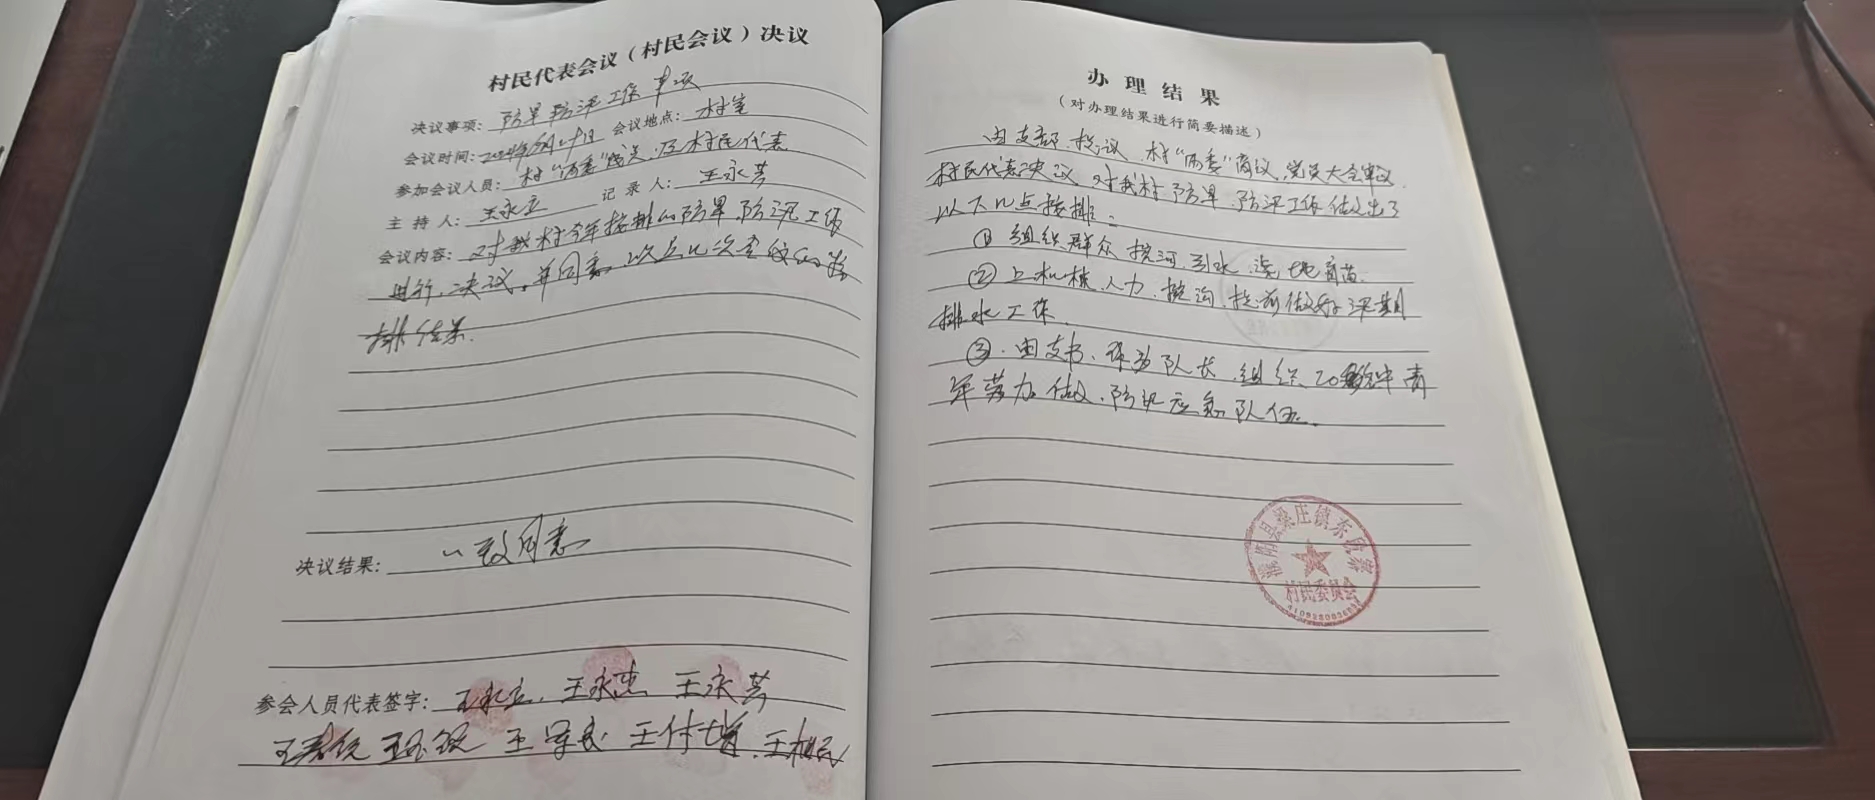 村民代表会议（村民会议）决议
决议事项：防旱防汛工作事项
会议时间： 会议地点：村室
参加会议人员：村“两委”成员及村民代表
主持人：王永立 记录人：王永芳
会议内容：对我村今年按排的防旱防汛工作
进行决议，并同意以上几次会议的
排结果.
决议结果：一致同意
参会人员代表签字：王永立. 王永忠 王永芳
王付增.
办理结果
（对办理结果进行简要描述）
由支部提议 村“两委”商议,党员大会审议.
村民代表决议 对我村防旱、防汛工作做出了
以下几点按排：
① 组织群众 挖河.引水.浇地育苗.
② 上机械.人力.挖沟 提前做好汛期
排水工作.
③. 由支书、任为队长.组织20 青
年劳力做.防汛应急队伍.
濮阳县梁庄镇东段寨
村民委员会